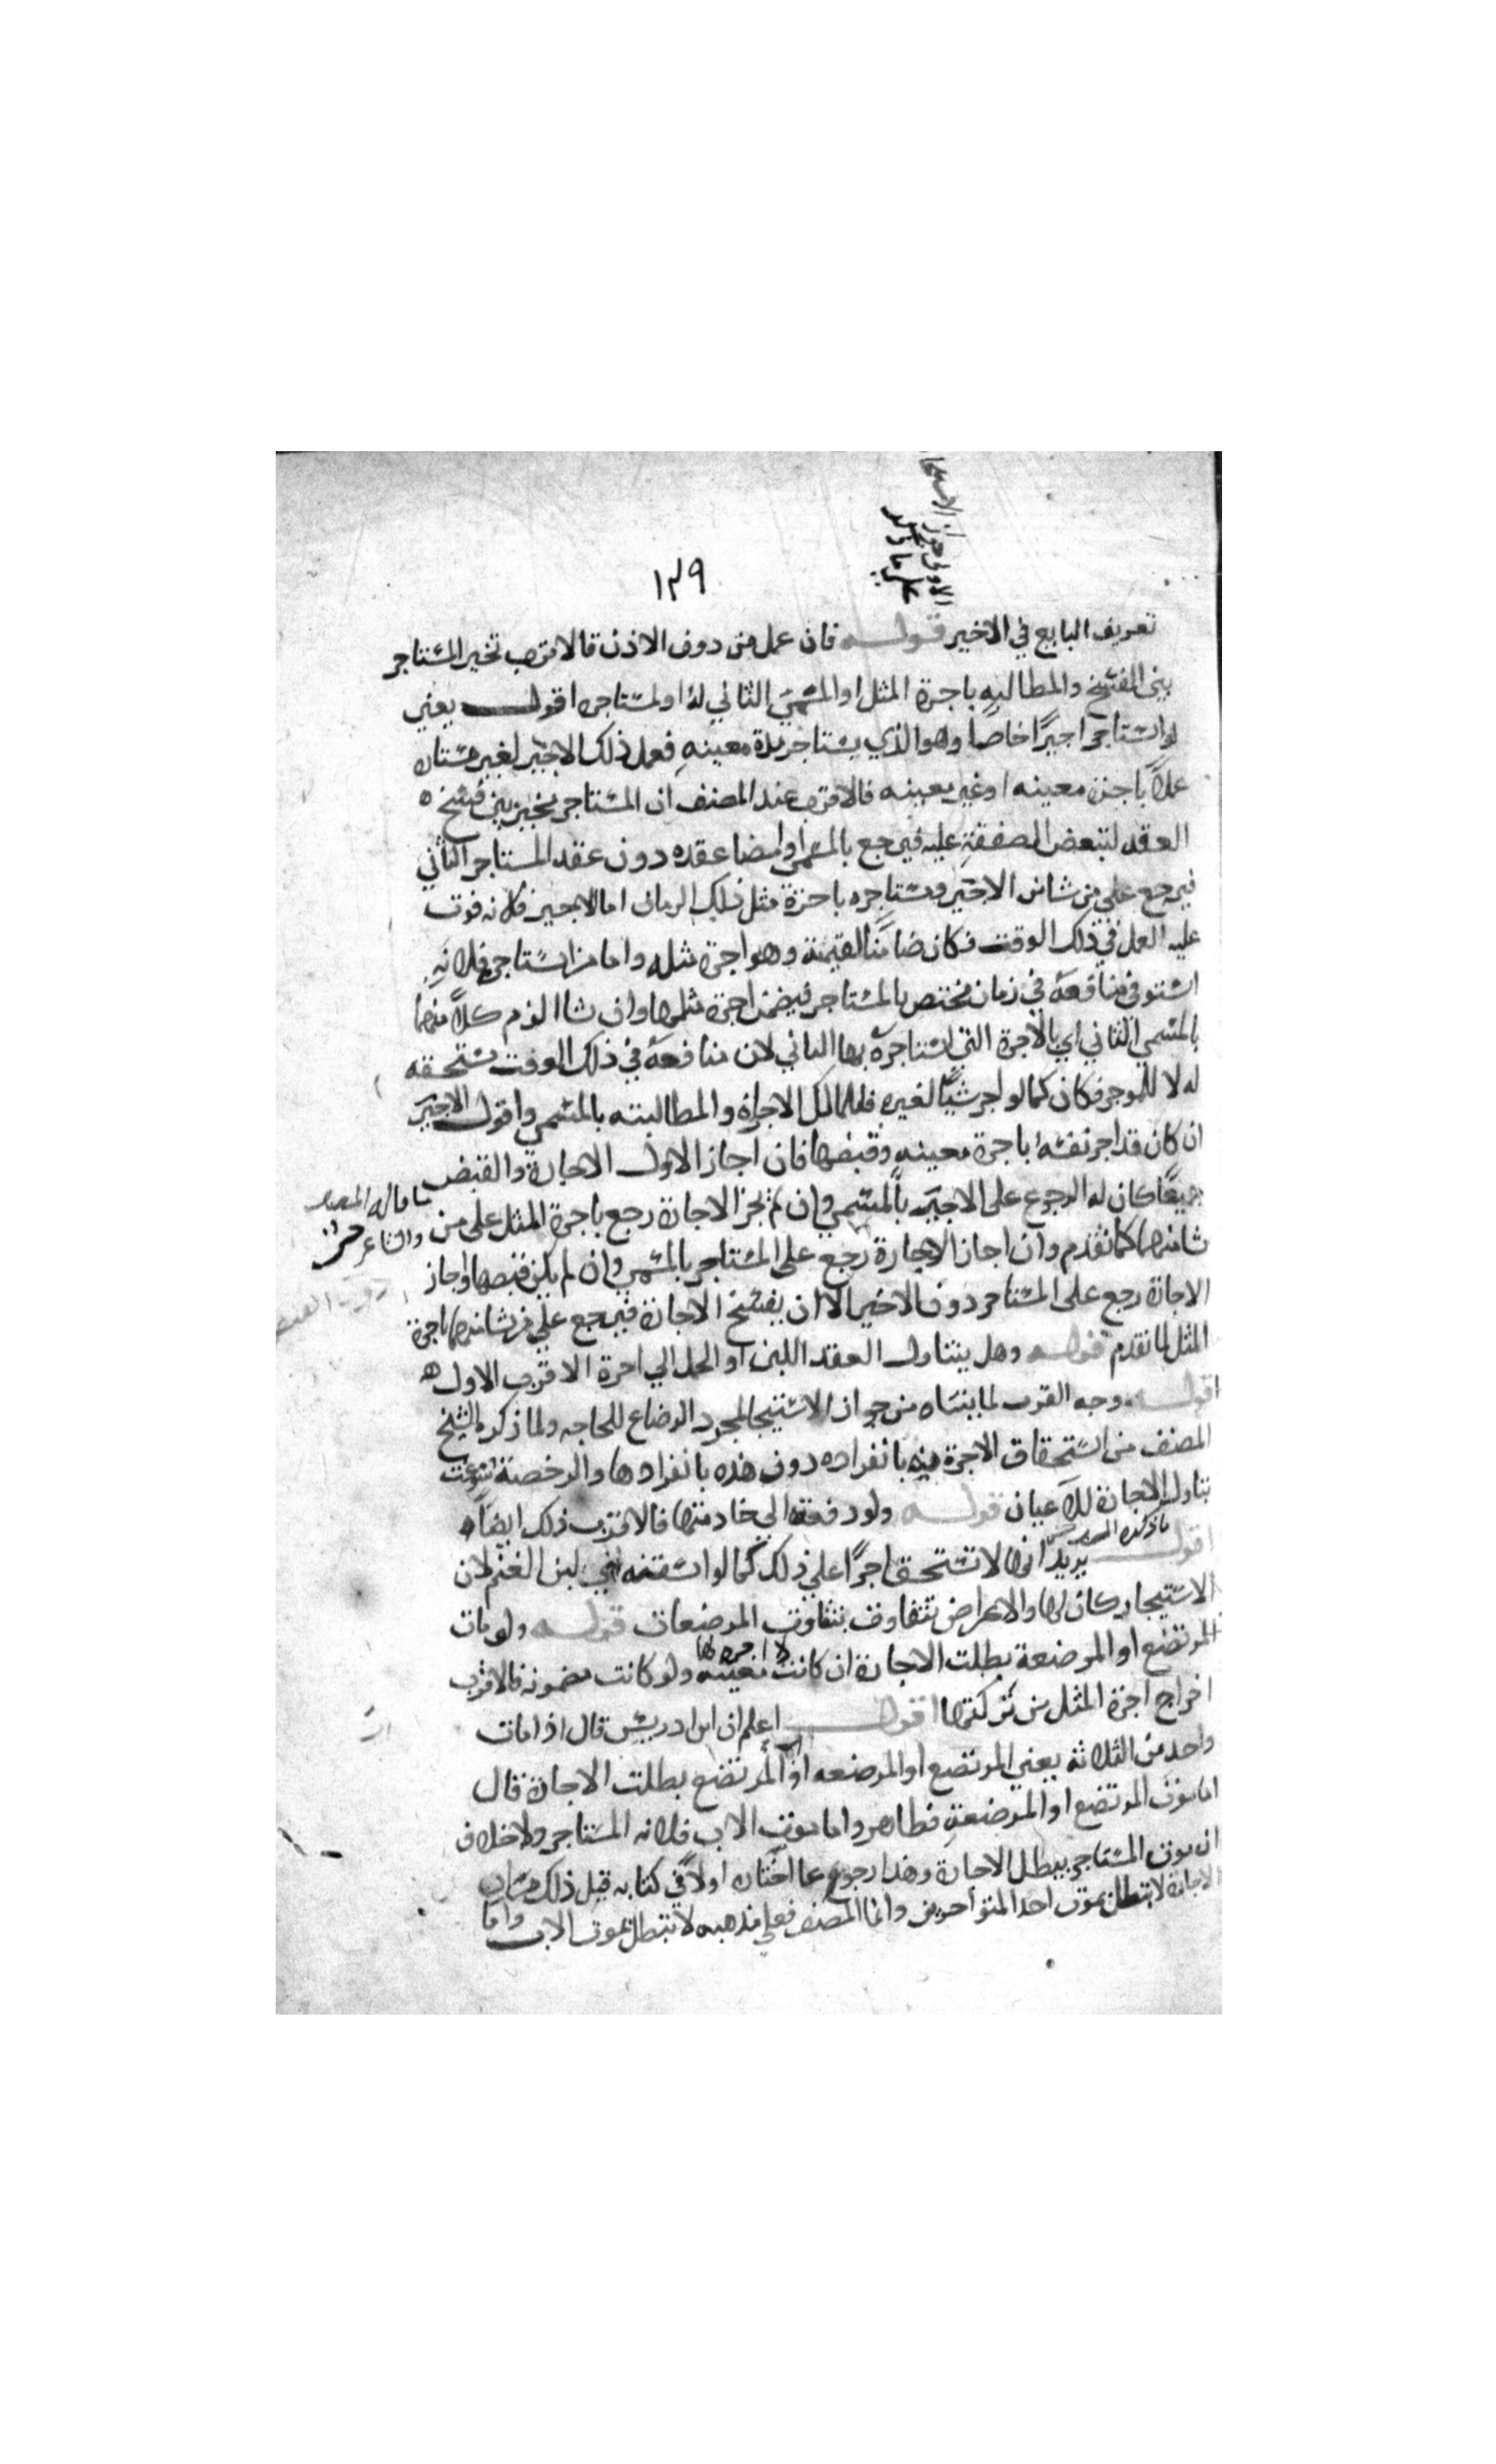 ١٣٩
تعريف البايع في الاخير قولـــه فان عمل من دون الاذن فالاقرب تخير المستاجر
بين الفسخ والمطالبه باجرة المثل او المسمي الثاني له او لمستاجره اقولــــ يعني
لو استاجر اجيرًا خاصا وهو الذي يستاجر مدة معينهِ فعمل ذلك الاجير لغير مستاجره
عملاً باجرة معينه او غير معينه فالاقرب عند المصنف ان المستاجر تخير بين فسخ
العقد لتبعض الصفقةِ عليه فيرجع بالمسمي او امضا عقده دون عقد المستاجر الثاني
فيرجع على من شا من الاجير ومستاجره باجرة مثل ذلك الزمان اما الاجير فلانه فوت
عليه العمل في ذلك الوقت فكان ضامنًا لقيمة وهو اجرة مثله واما من استاجره فلانهِ
استوفى منافعهُ في زمان مختص بالمستاجر فيضمن اجرة مثلها وان شا الزم كلاً منهما
بالمسمي الثاني اي بالاجرة التي استاجره بها الثاني لان منافعهُ في ذلك الوقت مستحقه
له لا للموجر فكان كما لو اجر شيًا لغيره فللمالك الاجازة والمطالبته بالمسمي واقول الاجير
ان كان قد اجر نفسهُ باجرة معينهِ وقبضها فان اجاز الاول الاجارة والقبض
جميعًا كان له الرجوع على الاجير بالمسمي وان لم يجز الاجارة رجع باجرة المثل على من
شا منهما كما تقدم وان اجاز الاجارة رجع على المستاجر بالمسمي وان لم يكن قبضها واجاز
الاجارة رجع على المستاجر دون الاجير الا ان يفسخ الاجارة فيرجع على من شا منهما باجرة
المثل لما تقدم قولـــه وهل يتناول العقد اللبن او الحمل الي اخره الاقرب الاول
اقولـــ وجه القرب لما بيناه من جواز الاستيجار لمجرد الرضاع للحاجه ولما ذكره الشيخ
المصنف من استحقاق الاجرة به بانفراده دون هذه بانفرادها والرخصة سوغت
تناول الاجارة للاعيان قولـــه ولو دفعته الى خادمتها فالاقرب ذلك ايضاً
اقولـــ يريد انها لا تستحق اجرًا على ذلك كما لو اسقته لبن الغنم لان
الاستيجار كان لها والاغراض تتفاوت بتفاوت المرضعات قولـــه ولو مات
المرتضع او المرضعة بطلت الاجارة ان كانت معينه ولو كانت مضمونه فالاقرب
اخراج اجرة المثل من تركتها اقولــــ اعلم ان ابن ادريس قال اذا مات
واحد من الثلاثة يعني المرتضع او المرضعه او اب المرتضع بطلت الاجارة قال
اما موت المرتضع او المرضعةِ فظاهر واما موت الاب فلانه المستاجر ولا خلاف
ان موت المستاجر يبطل الاجارة وهذا رجوع عما اختاره اولاً في كتابه قبل ذلك من ان
الاجارة لا تبطل بموت احد المتواجرين واما المصنف فعلي مذهبه لا تبطل بموت الاب واما